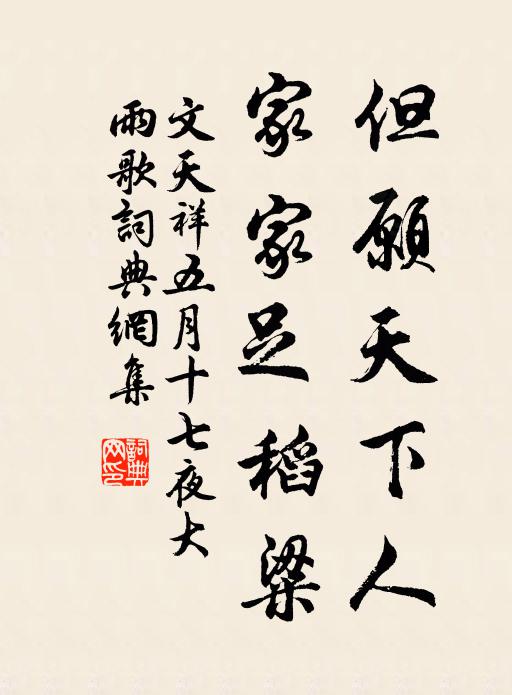 但願天下人
家家足稻粱
文天祥五月十七夜大
雨歌詞典網集
詞典
网印